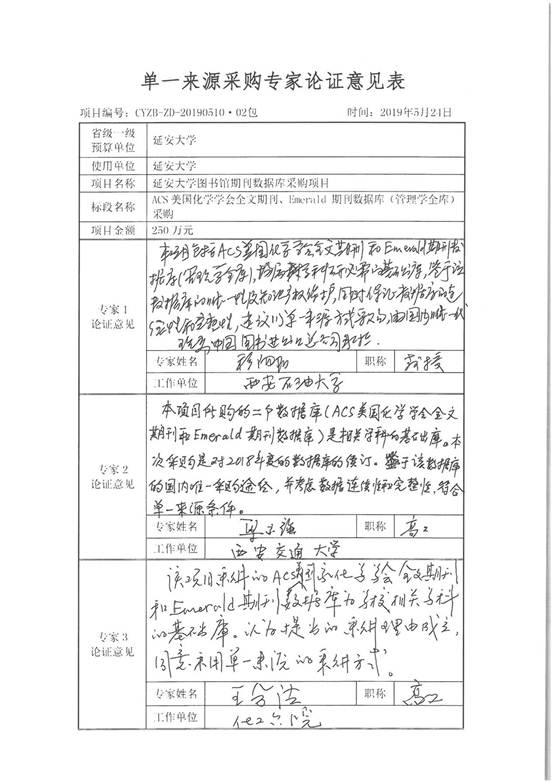 单一来源采购专家论证意见表
项目编号：CYZB-ZD-20190510·02包 时间：2019年5月24日
省级一级预算单位 延安大学
使用单位 延安大学
项目名称 延安大学图书馆期刊数据库采购项目
标段名称 ACS 美国化学学会全文期刊、Emerald 期刊数据库（管理学全库）
采购
项目金额 250 万元
专家1
论证意见
本项目包括ACS美国化学学会全文期刊和Emerald期刊数
据库(管理学全库)，
基础库，鉴于该
数据库的唯一性及知识产权保护，同时保证数据库的连
续性和完整性，建议以单一来源方式采购，由国内唯一代
理商中国图书进出口总公司
专家姓名 职称 教授
工作单位 西安石油大学
专家2
论证意见
本项目所购的二个数据库(ACS美国化学学会全文
期刊和Emerald期刊数据库)是相关学科的基础出库。本
次采购是对2018年度的数据库的续订。鉴于该数据库
的国内唯一采购途径，并考虑数据连续性和完整性，符合
单一来源条件。
专家姓名 职称 高工
工作单位 西安交通大学
专家3
论证意见
该项目采购的ACS美国化学学会全文期刊
和Emerald期刊数据库为学校相关学科
的基础库。认为提出的采购理由成立，
同意采用单一来源的采购方式。
专家姓名 职称 高工
工作单位